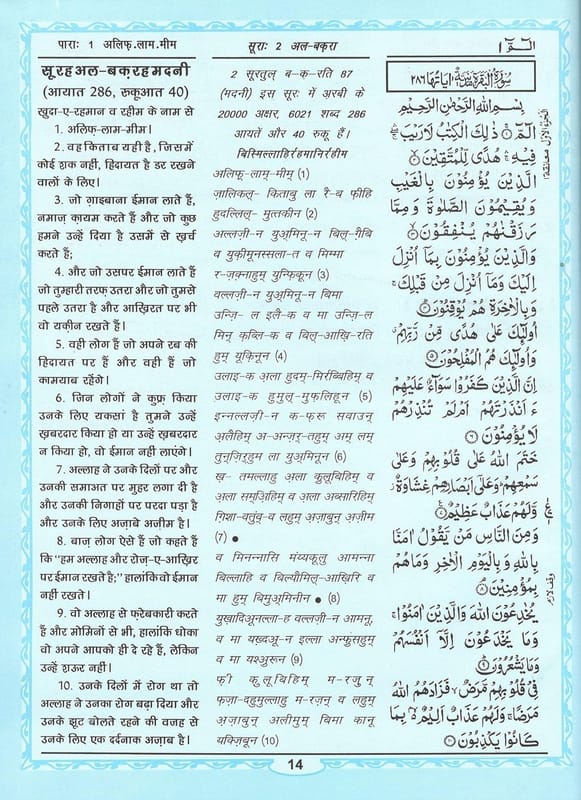 पाराः 1 अलिफ़्.लाम.मीम
सूरह अल-बक़रह मदनी
(आयात 286, रुकूआत 40)
खुदा-ए-रहमान व रहीम के नाम से
1. अलिफ़-लाम-मीम।
2. वह किताब यही है, जिसमें
कोई शक नहीं, हिदायत है डर रखने
वालों के लिए।
3. जो ग़ाइबाना ईमान लाते हैं,
नमाज़ क़ायम करते हैं और जो कुछ
हमने उन्हें दिया है उसमें से ख़र्च
करते हैं;
4. और जो उसपर ईमान लाते हैं
जो तुम्हारी तरफ़ उतरा और जो तुमसे
पहले उतरा है और आख़िरत पर भी
वो यक़ीन रखते हैं।
5. वही लोग हैं जो अपने रब की
हिदायत पर हैं और वही हैं जो
कामयाब रहेंगे।
6. जिन लोगों ने कुफ़्र किया
उनके लिए यकसां है तुमने उन्हें
ख़बरदार किया हो या उन्हें ख़बरदार
न किया हो, वो ईमान नहीं लाएंगे।
7. अल्लाह ने उनके दिलों पर और
उनकी समाअत पर मुहर लगा दी है
और उनकी निगाहों पर परदा पड़ा है
और उनके लिए अज़ाबे अज़ीम है।
8. बाज़ लोग ऐसे हैं जो कहते हैं
कि “हम अल्लाह और रोज़-ए-आख़िर
पर ईमान रखते हैं;” हालांकि वो ईमान
नहीं रखते।
9. वो अल्लाह से फ़रेबकारी करते
हैं और मोमिनों से भी, हालांकि धोका
वो अपने आपको ही दे रहे हैं, लेकिन
उन्हें शऊर नहीं।
10. उनके दिलों में रोग था तो
अल्लाह ने उनका रोग बढ़ा दिया और
उनके झूट बोलते रहने की वजह से
उनके लिए एक दर्दनाक अज़ाब है।
सूराः 2 अल-बक़रा
2 सूरतुल् ब-क़-रति 87
(मदनी) इस सूरः में अ़रबी के
20000 अक्षर, 6021 शब्द 286
आयतें और 40 रुकू हैं।
बिस्मिल्लाहिर्रहमानिर्रहीम
अलिफ़्-लाम्-मीम् (1)
ज़ालिकल्- किताबु ला रै-ब फ़ीहि
हुदल्लिल्- मुत्तक़ीन (2)
अल्लज़ी-न युअ्मिनू-न बिल्-ग़ैबि
व युक़ीमूनस्सला-त व मिम्मा
र-ज़क़्नाहुम् युन्फ़िकून (3)
वल्लज़ी-न युअ्मिनू-न बिमा
उन्ज़ि- ल इलै-क व मा उन्ज़ि-ल
मिन् क़ब्लि-क व बिल्-आख़ि-रति
हुम् यूक़िनून (4)
उलाइ-क अ़ला हुदम्-मिर्रब्बिहिम् व
उलाइ-क हुमुल्-मुफ़्लिहून (5)
इन्नल्लज़ी-न क-फ़रू सवाउन्
अ़लैहिम् अ-अन्ज़र्-तहुम् अम् लम्
तुन्ज़िर्हुम ला युअ्मिनून (6)
ख़- तमल्लाहु अ़ला क़ुलूबिहिम् व
अ़ला समअ़िहिम् व अ़ला अब्सारिहिम्
ग़िशा-वतुंव् व लहुम् अ़ज़ाबुन् अ़ज़ीम
(7) ●
व मिनन्नासि मंय्यकूलु आमन्ना
बिल्लाहि व बिल्यौमिल्-आख़िरि व
मा हुम् बिमुअ्मिनीन ● (8)
युख़ादिअूनल्ला-ह वल्लज़ी-न आमनू,
व मा यख़्दअू-न इल्ला अन्फ़ुसहुम्
व मा यश्अुरून (9)
फ़ी क़ुलूबिहिम् म-रज़ुन्
फ़ज़ा-दहुमुल्लाहु म-रज़न् व लहुम्
अ़ज़ाबुन् अलीमुम् बिमा कानू
यक्ज़िबून (10)
الٓمّٓ ١
سُوْرَةُ الْبَقَرَةِ مَدَنِيَّةٌ اٰيَاتُهَا ٢٨٦
بِسْمِ اللّٰهِ الرَّحْمٰنِ الرَّحِيْمِ
الٓمّٓ ۚ ذٰلِكَ الْكِتٰبُ لَا رَيْبَ ۛ
فِيْهِ ۛ هُدًى لِّلْمُتَّقِيْنَ ۙ
الَّذِيْنَ يُؤْمِنُوْنَ بِالْغَيْبِ
وَيُقِيْمُوْنَ الصَّلٰوةَ وَمِمَّا
رَزَقْنٰهُمْ يُنْفِقُوْنَ ۙ
وَالَّذِيْنَ يُؤْمِنُوْنَ بِمَآ اُنْزِلَ
اِلَيْكَ وَمَآ اُنْزِلَ مِنْ قَبْلِكَ ۚ
وَبِالْاٰخِرَةِ هُمْ يُوْقِنُوْنَ
اُولٰٓئِكَ عَلٰى هُدًى مِّنْ رَّبِّهِمْ ۗ
وَاُولٰٓئِكَ هُمُ الْمُفْلِحُوْنَ ٥
اِنَّ الَّذِيْنَ كَفَرُوْا سَوَآءٌ عَلَيْهِمْ
ءَاَنْذَرْتَهُمْ اَمْ لَمْ تُنْذِرْهُمْ
لَا يُؤْمِنُوْنَ ٦
خَتَمَ اللّٰهُ عَلٰى قُلُوْبِهِمْ وَعَلٰى
سَمْعِهِمْ ۗ وَعَلٰٓى اَبْصَارِهِمْ غِشَاوَةٌ ۖ
وَّلَهُمْ عَذَابٌ عَظِيْمٌ
وَمِنَ النَّاسِ مَنْ يَّقُوْلُ اٰمَنَّا
بِاللّٰهِ وَبِالْيَوْمِ الْاٰخِرِ وَمَا هُمْ
بِمُؤْمِنِيْنَ
يُخٰدِعُوْنَ اللّٰهَ وَالَّذِيْنَ اٰمَنُوْا ۚ
وَمَا يَخْدَعُوْنَ اِلَّآ اَنْفُسَهُمْ
وَمَا يَشْعُرُوْنَ
فِيْ قُلُوْبِهِمْ مَّرَضٌ ۙ فَزَادَهُمُ اللّٰهُ
مَرَضًا ۚ وَلَهُمْ عَذَابٌ اَلِيْمٌ ۙ بِمَا
كَانُوْا يَكْذِبُوْنَ
14